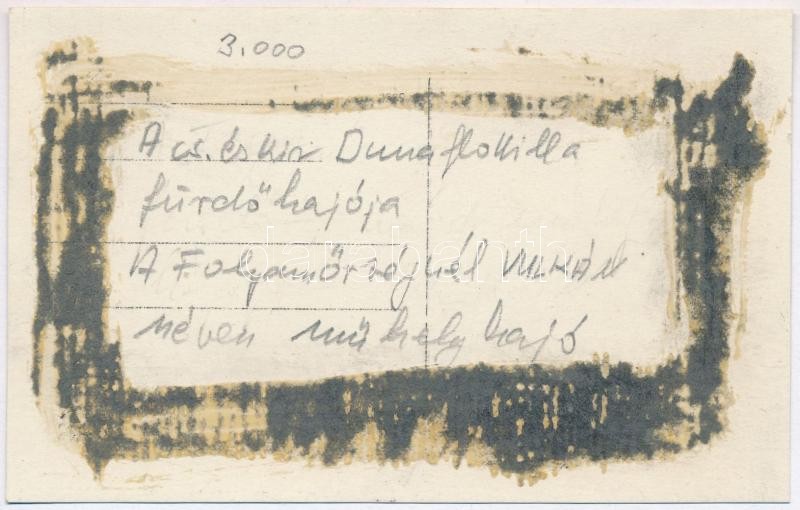 3.000
A cs. és kir. Dunaflottilla
fürdőhajója
A Folyamőrségnél
néven műhelyhajó
darabanth